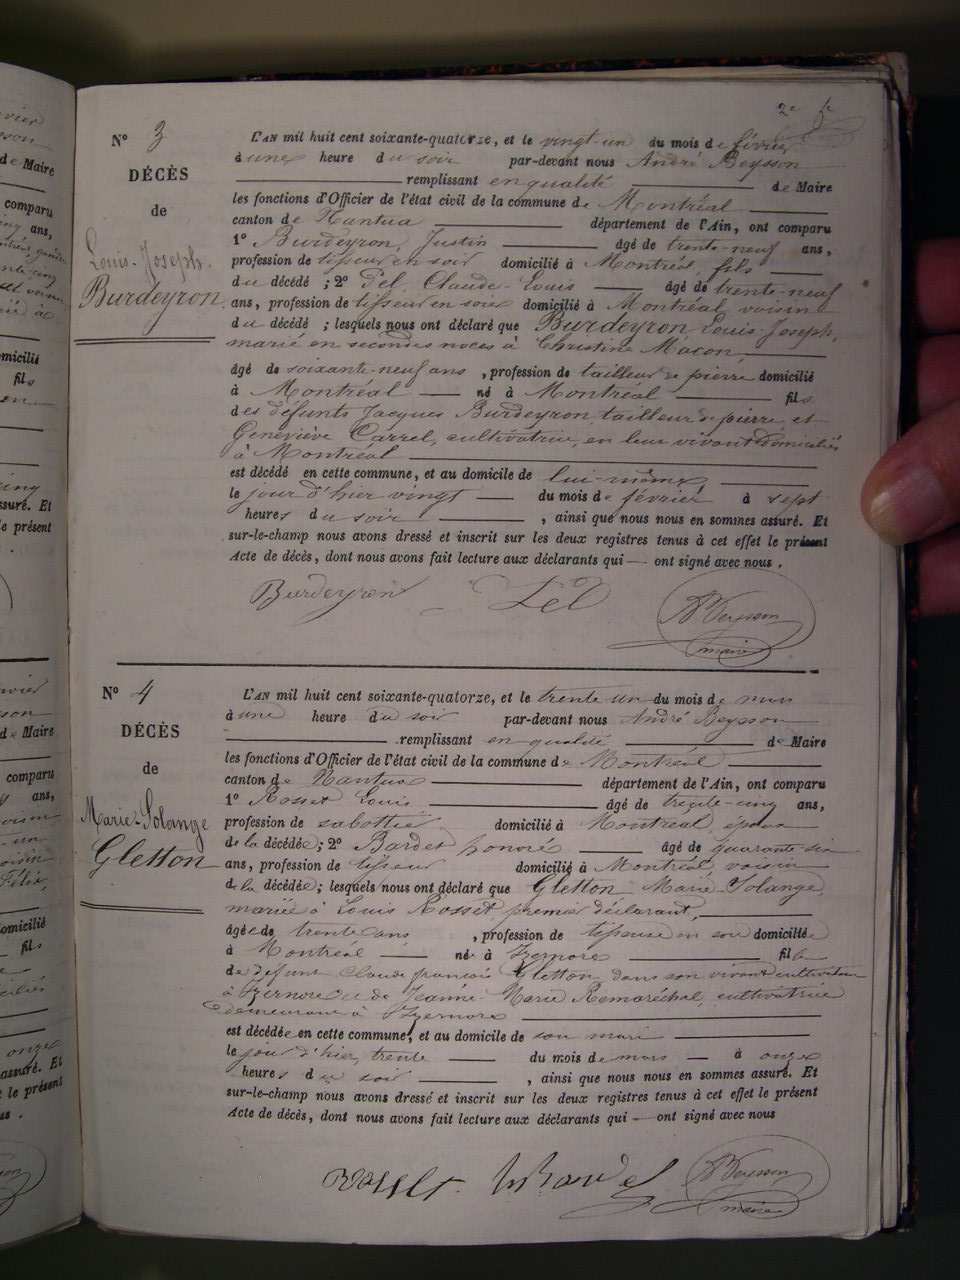 2e fe
No 3
DÉCÈS
de
Louis-Joseph
Burdeyron
L'AN mil huit cent soixante-quatorze, et le vingt-un du mois de février
à une heure du soir par-devant nous André Beysson
remplissant en qualité de Maire
les fonctions d'Officier de l'état civil de la commune de Montréal
canton de Nantua département de l'Ain, ont comparu
1° Burdeyron, Justin âgé de trente-neuf ans,
profession de tisseur en soie domicilié à Montréal, fils
du décédé ; 2° Pel, Claude-Louis âgé de trente-neuf
ans, profession de tisseur en soie domicilié à Montréal voisin
du décédé ; lesquels nous ont déclaré que Burdeyron Louis-Joseph,
marié en secondes noces à Christine Maçon,
âgé de soixante-neuf ans , profession de tailleur de pierre domicilié
à Montréal né à Montréal fils
des défunts Jacques Burdeyron tailleur de pierre, et
Geneviève Carrel, cultivatrice, en leur vivant domiciliés
à Montréal
est décédé en cette commune, et au domicile de lui-même
le jour d'hier vingt du mois de février à sept
heures du soir , ainsi que nous nous en sommes assuré. Et
sur-le-champ nous avons dressé et inscrit sur les deux registres tenus à cet effet le présent
Acte de décès, dont nous avons fait lecture aux déclarants qui ont signé avec nous .
Burdeyron Pel Beysson
maire
No 4
DÉCÈS
de
Marie-Solange
Gletton
L'AN mil huit cent soixante-quatorze, et le trente un du mois de mars
à une heure du soir par-devant nous André Beysson
remplissant en qualité de Maire
les fonctions d'Officier de l'état civil de la commune de Montréal
canton de Nantua département de l'Ain, ont comparu
1° Rosset Louis âgé de trente-cinq ans,
profession de sabottié domicilié à Montréal, époux
de la décédée; 2° Bardet honoré âgé de quarante-six
ans, profession de tisseur domicilié à Montréal voisin
de la décédée; lesquels nous ont déclaré que Gletton Marie-Solange,
mariée à Louis Rosset, premier déclarant,
âgée de trente ans , profession de tisseuse en soie domiciliée
à Montréal née à Izernore fille
de défunt Claude françois Gletton dans son vivant cultivateur
à Izernore et de Jeanne-Marie Remaréchal, cultivatrice
demeurant à Izernore
est décédée en cette commune, et au domicile de son mari
le jour d'hier, trente du mois de mars à onze
heures du soir , ainsi que nous nous en sommes assuré. Et
sur-le-champ nous avons dressé et inscrit sur les deux registres tenus à cet effet le présent
Acte de décès, dont nous avons fait lecture aux déclarants qui ont signé avec nous
Rosset Beysson
maire